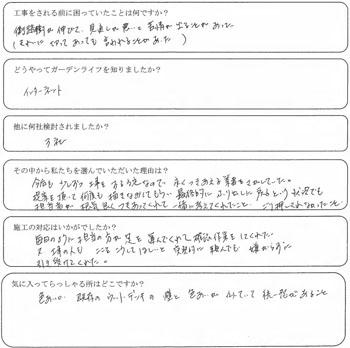 工事をされる前に困っていたことは何ですか?
街路樹が伸びて、見通しが悪い。苦情が出ることがあった
(それに 切ってあっても言われることがあった)
どうやってガーデンライフを知りましたか?
インターネット
他に何社検討されましたか?
3社
その中から私たちを選んでいただいた理由は?
今后も少しずつ工事をするうえなので 永くつきあえる業者をさがしていた。
提案を頂いて何度も描きなおしてもらい 最終的にふり出しに戻るという状況でも
担当者が 根気良くつきあってくれて 一緒に考えてくれたこと。 ごり押しでなかったこと。
施工の対応はいかがでしたか?
毎日のように担当の方が足を運んでくれて 確認作業をしてくれた。
又 工場の人も ここをこうしてほしいと 突発的に頼んでも 嫌がらずに
引き受けてくれた。
気に入ってらっしゃる所はどこですか?
色あい。 既存のウッドデッキの 壁と 色あいが 似ていて 統一感があること